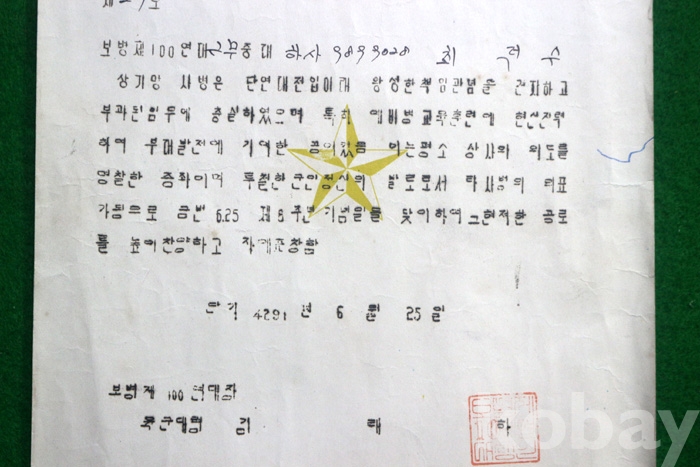 보병제100연대 근무중대 하사 9893028 최 수
상기양 사병은 단연대전입이래 왕성한책임관념을 간지하고
부과된임무에 충실하였으며 특히 예비병교육훈련에 헌신진력
하여 부대발전에 기여한 공이있음 이는평소 상사의 의도를
명찰한 증좌이며 투철한군인정신의 발로로서 타사병의 표
가됨으로 금번 6.25 제8주년기념일을 맞이하여 그현적한 공로
를 높이찬양하고 자에표창함
단기 4291 년 6 월 25 일
보병제 100 연대장
육군대령 김 태
kobay